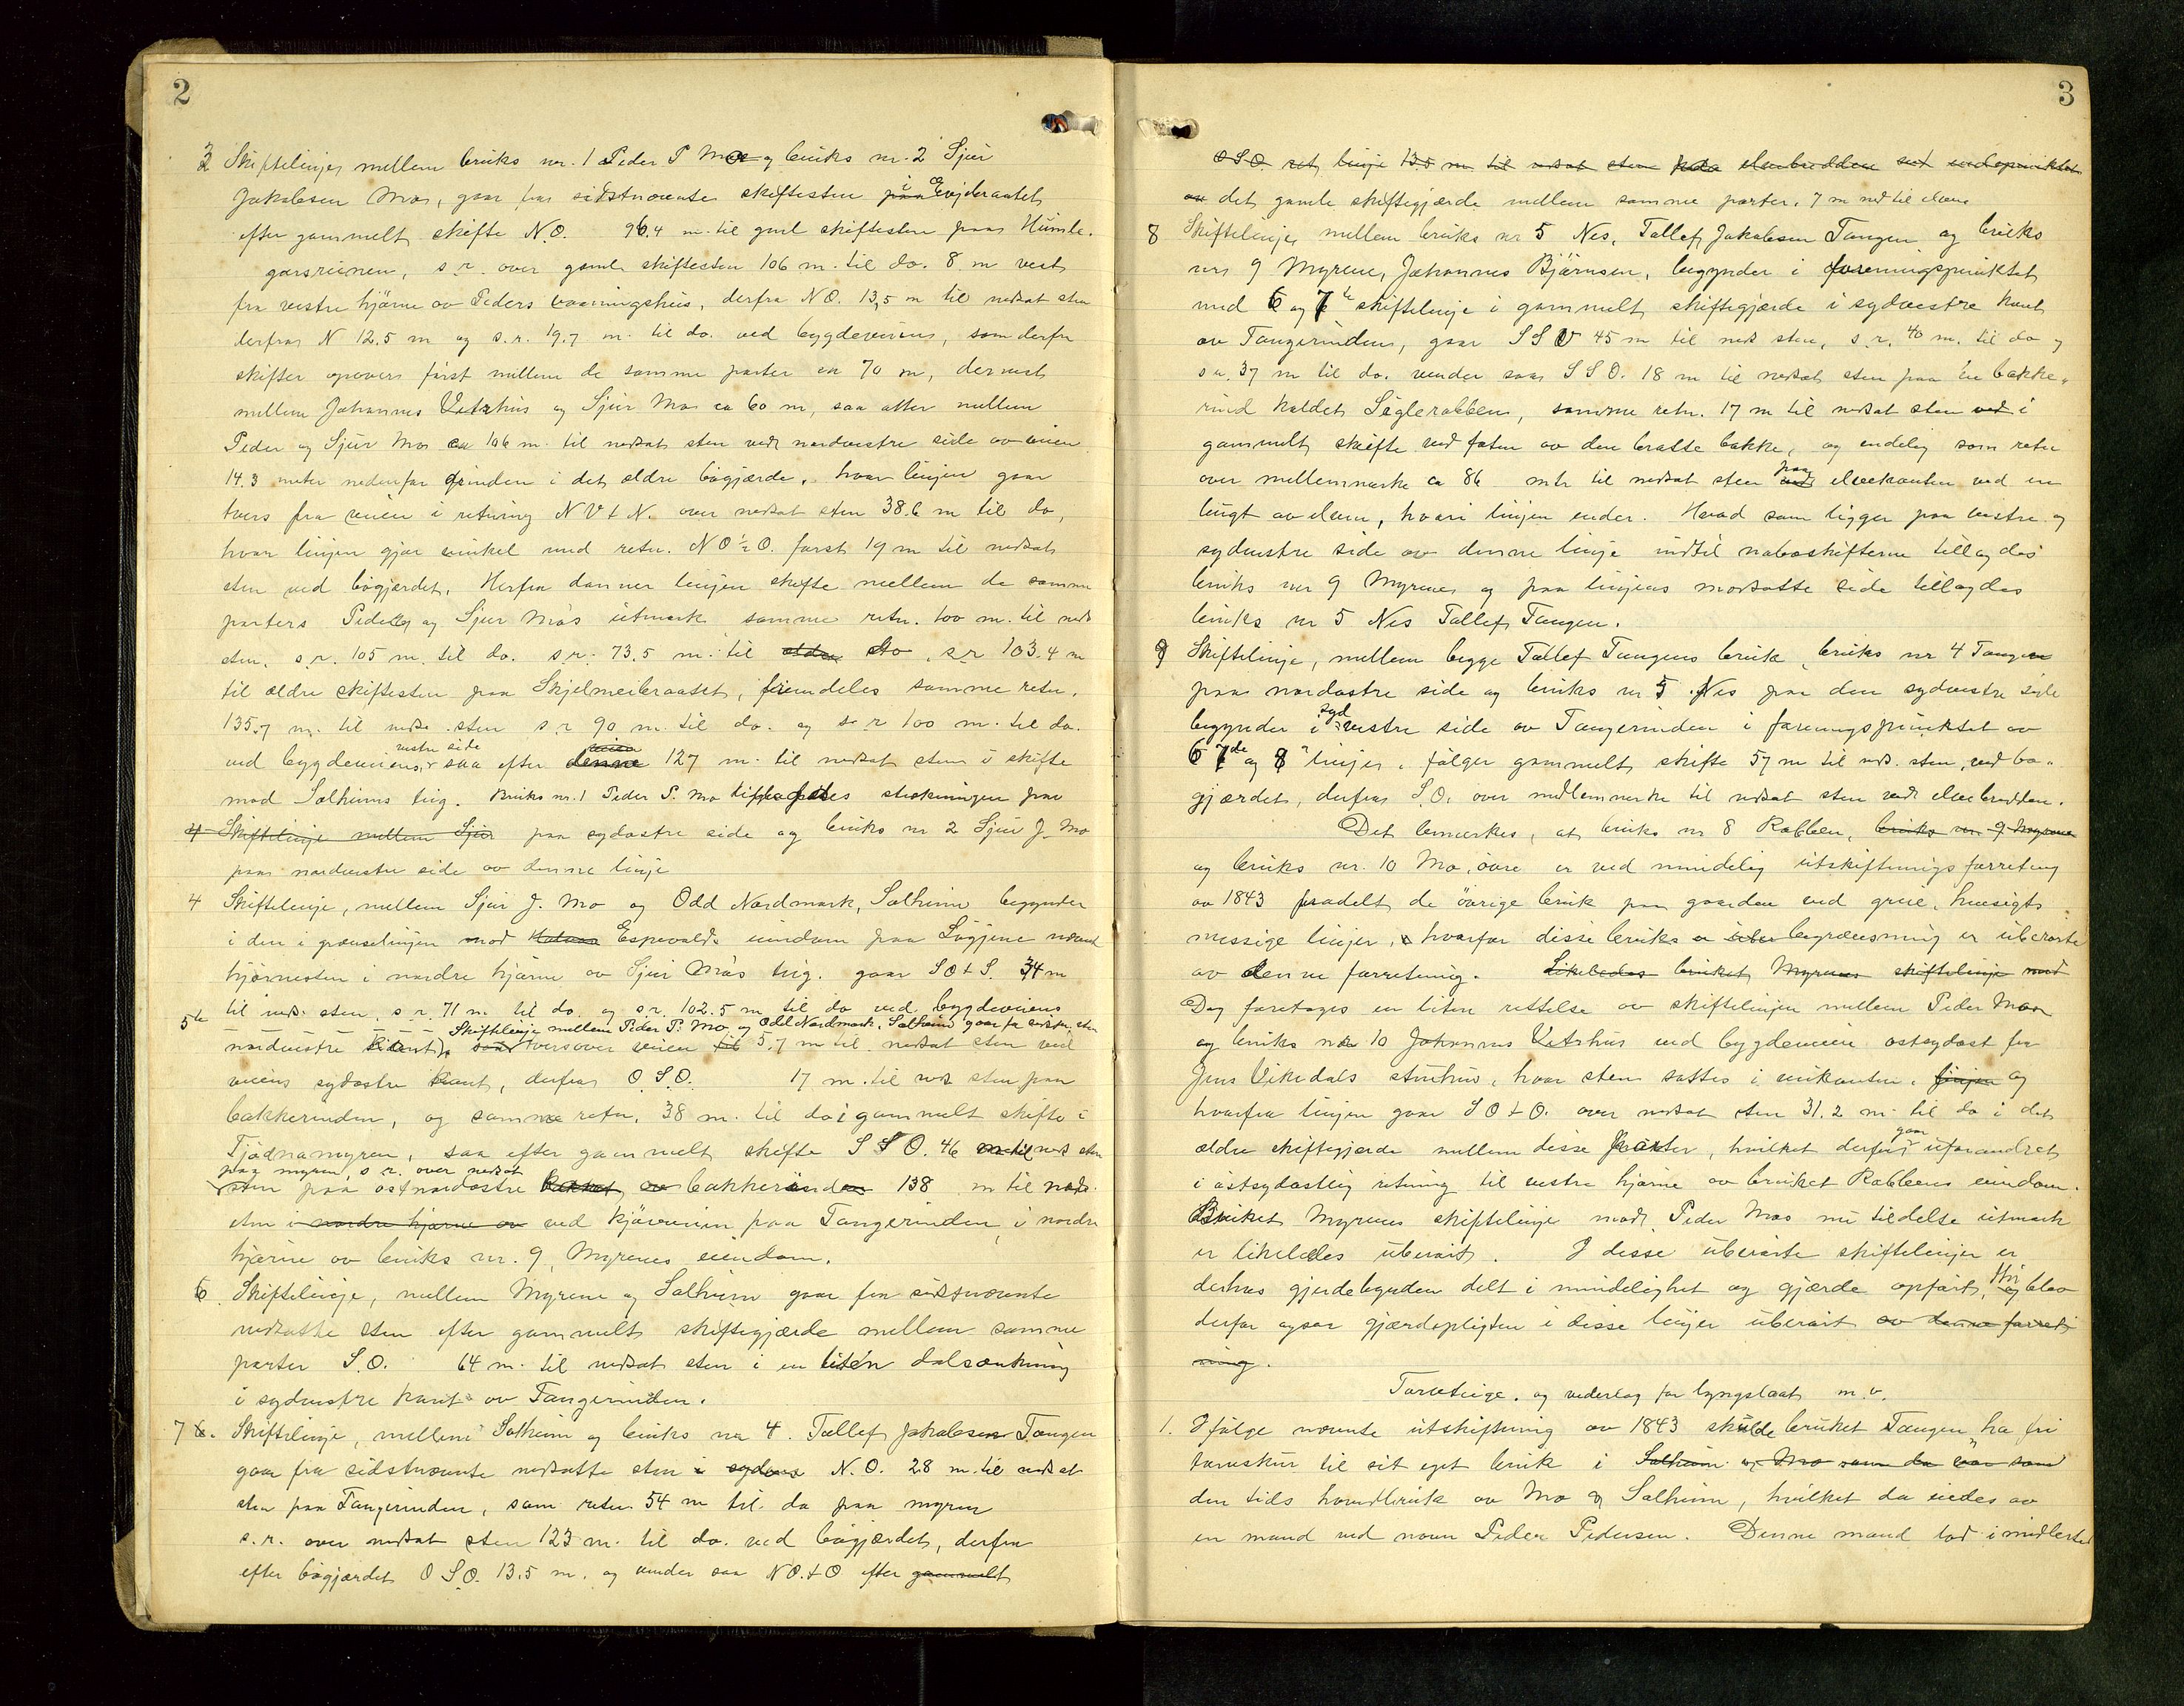 2
3 Skiftelinjer mellem bruks nr. 1 Peder P Mo og bruks nr. 2 Sjur
Jakobsen Mos, gaar fra sidstnævnte skiftesten paa i
efter gammelt skifte N.O. 96.4 m. til gml skiftesten paa Humle-
garsrinen, s.r. over gamle skiftesten 106 m. til do. 8 m vest
fra vestre hjörne av Peders vaaningshus, derfra NO. 13,5 m til nedsat sten
derfra N 12.5 m og s.r. 19.7 m. til do. ved bygdeveiens, som derfra
skifter opover först mellem de samme parter ca 70 m, dernest
mellem Johannes Vetrhus og Sjur Mos ca 60 m, saa atter mellem
Peder og Sjur Mos ca 106 m. til nedsat sten ved nordvestre side av veien
14.3 meter nedenfor grinden i det ældre bögjærde, hvor linjen gaar
tvers fra veien i retning N V t N. over nedsat sten 38.6 m til do,
hvor linjen gjør vinkel med retn. N O ½ O. først 19 m til nedsat
sten ved bögjærdet. Herfra danner linjen skifte mellem de samme
parters Peders og Sjur Mo's utmark samme retn. 100 m. til neds
sten, s.r. 105 m. til do. s.r. 73.5 m. til ældre do, s.r 103.4 m
til ældre skiftesten paa Skjelmeibraatet, fremdeles samme retn.
135.7 m. til neds. sten s.r 90 m. til do. og s.r 100 m. til do.
ved bygdeveiens vestre side saa efter denne veien 127 m. til nedsat sten i skifte
mod Solheims teig. Bruks nr. 1 Peder P. Mo tillægges strækningen paa
4 Skiftelinje mellem Sjur paa sydøstre side og bruks nr 2 Sjur J. Mo
paa nordvestre side av denne linje
4 Skiftelinje, mellem Sjur J. Mo og Odd Nordmark, Solheim begynder
i den i grænselinjen mod Espevolds eiendom paa Løgjene nævnt
hjörnesten i nordre hjörne av Sjur Mo's teig. gaar SOtS. 34 m
til neds. sten, s.r. 71 m. til do. og s.r. 102.5 m til do ved bygdeveiens
5te Skiftelinje mellem Peder P. Mo og Odd Nordmark, Solheim gaar fra sidstn. sten
nordvestre kant, saa tversover veien til 5.7 m til nedsat sten ved
veiens sydøstre kant, derfra O.S.O. 17 m. til neds sten paa
bakkerinden, og samme retn. 38 m. til do i gammelt skifte i
Tjödnamyren, saa efter gammelt skifte S S O. 46 m til neds sten
paa myren, s r. over nedsat
sten paa østnordøstre bakket av bakkerinden 138 m til neds.
sten i nordre hjørne av ved kjärveien paa Tangerinden i nordre
hjørne av bruks nr. 9, Myrenes eiendom.
6 Skiftelinje, mellem Myrene og Solheim gaar fra sidstnævnte
nedsatte sten efter gammelt skiftegjærde mellem samme
parter S.O. 64 m. til nedsat sten i en liten dalsænkning
i sydvestre kant av Tangerinden.
7 6. Skiftelinje, mellem Solheim og bruks nr 4. Tollef Jakobsen Tangen
gaar fra sidstnævnte nedsatte sten i N.O. 28 m. til nedsat
sten paa Tangerinden, sam retn 54 m til do paa myren
s.r. over nedsat sten 123 m. til do. ved bögjærdet, derfra
efter bögjærdet O S.O. 13.5 m. og vender saa NO.tO efter gammelt
3
O S.O. ret linje 13.5 m til nedsat sten paa elvebredden ved endepunktet
av det gamle skiftegjærde mellem samme parter. 7 m ned til elven
8 Skiftelinje mellem bruks nr 5 Nes, Tollef Jakobsen Tangen og bruks
nr 9 Myrene, Johannes Bjørnsen, begynder i foreningspunktet
med 6 og 7de skiftelinje i gammelt skiftegjærde i sydvestre kant
av Tangerinden, gaar S S V 45 m til neds sten, s.r. 40 m. til do og
s.r. 37 m til do. vender saa S S O. 18 m til nedsat sten paa en bakke-
rind kaldet Siglerabben, samme retn. 17 m til nedsat sten ved i
gammelt skifte ved foten av den bratte bakke, og endelig som retn
over mellemmerke ca 86 mtr til nedsat sten ved paa elvekanten ved en
bugt av elven, hvori linjen ender. Hvad som ligger paa vestre og
sydvestre side av denne linje indtil naboskifterne tillægdes
bruks nr 9 Myrene og paa linjens motsatte side tillægdes
bruks nr 5 Nes Tollef Tangen.
9 Skiftelinje, mellem begge Tollef Tangens bruk, bruks nr 4 Tangen
paa nordøstre side og bruks nr 5 Nes paa den sydvestre side
begynder i syd vestre side av Tangerinden i foreningspunktet av
6 7de og 8 linjer, følger gammelt skifte 57 m til neds. sten, ved bö-
gjærdet, derfra S.O. over mellemmerke til nedsat sten ved elvebredden.
Det bemærkes, at bruks nr 8 Rabben, bruks nr. 9 Myrene
og bruks nr. 10 Mo, övre er ved mindelig utskiftningsforretning
av 1843 fradelt de övrige bruk paa gaarden ved greie, hensigts
messige linjer, hvorfor disse bruks begrænsning er uberørte
av denne forretning. Likeledes bruket Myrenes skiftelinje mod
Dog foretoges en liten rettelse av skiftelinjen mellem Peder Mos
og bruks nr 10 Johannes Vetrhus ved bygdeveien ostsydost for
Jens Vikedals stuehus, hvor sten sattes i veikanten, linjen og
hvorfra linjen gaar S O t O. over nedsat sten 31.2 m. til do i det
ældre skiftegjerde mellem disse parter, hvilket derfra gaar uforandret
i östsydöstlig retning til vestre hjørne av bruket Rabbens eiendom.
Bruket Myrenes skiftelinje mod Peder Mos nu tildelte utmark
er likeledes uberørt. I disse uberørte skiftelinjer er
derhos gjerdebyrden delt i mindelighet og gjærde opført, Hvi og blev
derfor ogsaa gjærdepligten i disse linjer uberørt av denne forret
ning.
Torvteige. og vederlag for lyngslaat m.v.
1. Ifølge nævnte utskiftning av 1843 skulde bruket Tangen "ha fri
torvskur til sit eget bruk i Solheim og Mo som da var som
den tids hovedbruk av Mo og Solheim, hvilket da eiedes av
en mand ved navn Peder Pedersen. Denne mand lod imidlertid